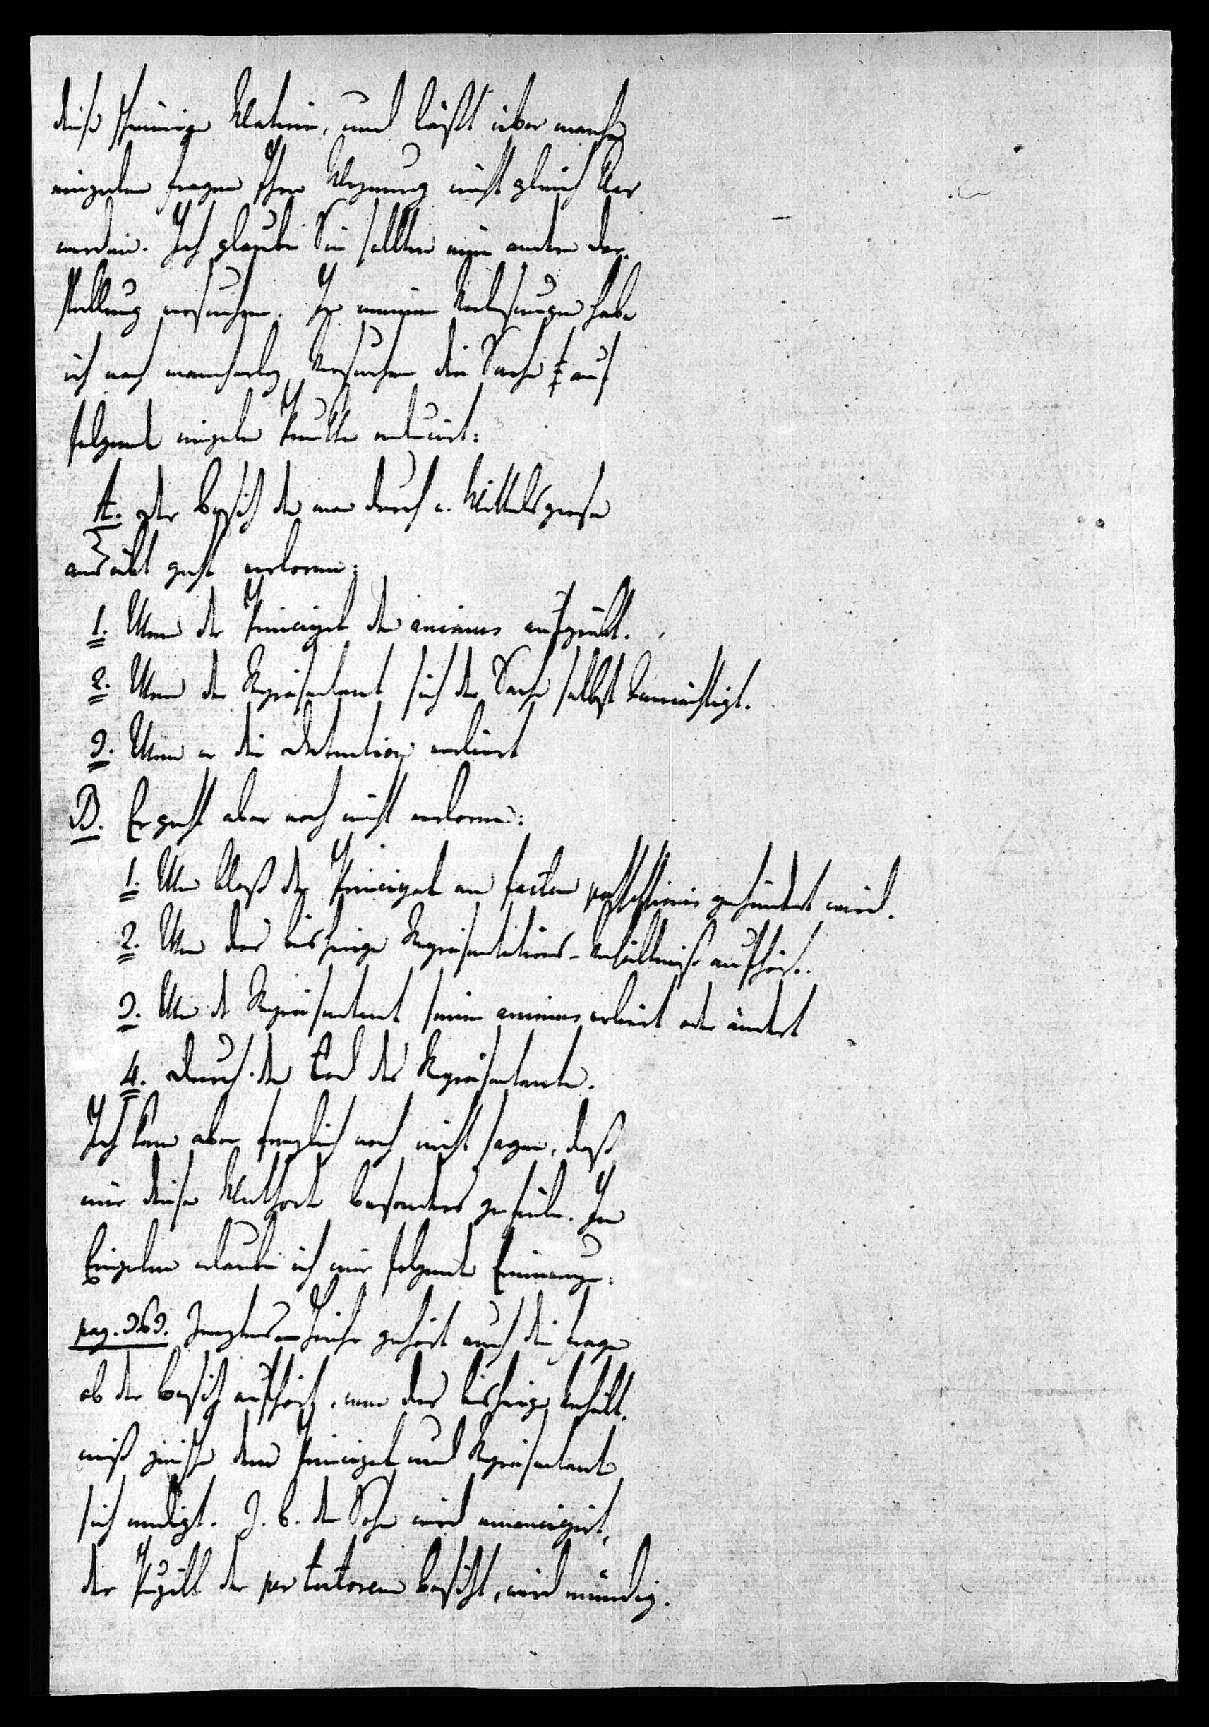 diese schwierige Materie, und läßt über manche
einzelne Fragen Ihre Meynung nicht gleich klar
werden. Ich glaube Sie sollten eine andere Dar-
stellung versuchen. In meinen Vorlesungen habe
ich nach mancherley Versuchen die Sache auf
folgende einzelne Punkte reducirt:
A. Der Besitz den man durch e. Mittelsperson
ausübt geht verloren:
1. Wenn der Principal den animus aufgiebt.
2. Wenn der Repräsentant sich der Sache selbst bemächtigt.
3. Wenn er die Detention verliert
B. Er geht aber noch nicht verloren:
1. Wen bloß der Principal am factum possessionis gehindert wird.
2. Wen das bisherige Repräsentations-Verhältniß aufhört.
3. Wen d Repräsentant seinen animus verliert oder ändert
4. Durch den Tod des Repräsentanten.
Ich kann aber freylich noch nicht sagen, daß
mir diese Methode besonders gefiele. Im
Einzelnen erlaube ich mir folgende Erinnerungen:
pag. 363. gehört auch die Frage
ob der Besitz aufhört, wenn das bisherige Verhält-
niß zwischen dem Principal und Repräsentant
sich endigt. Z. B. der Sohn wird emancipirt,
der Pupill der per tutorem besitzt, wird mündig.